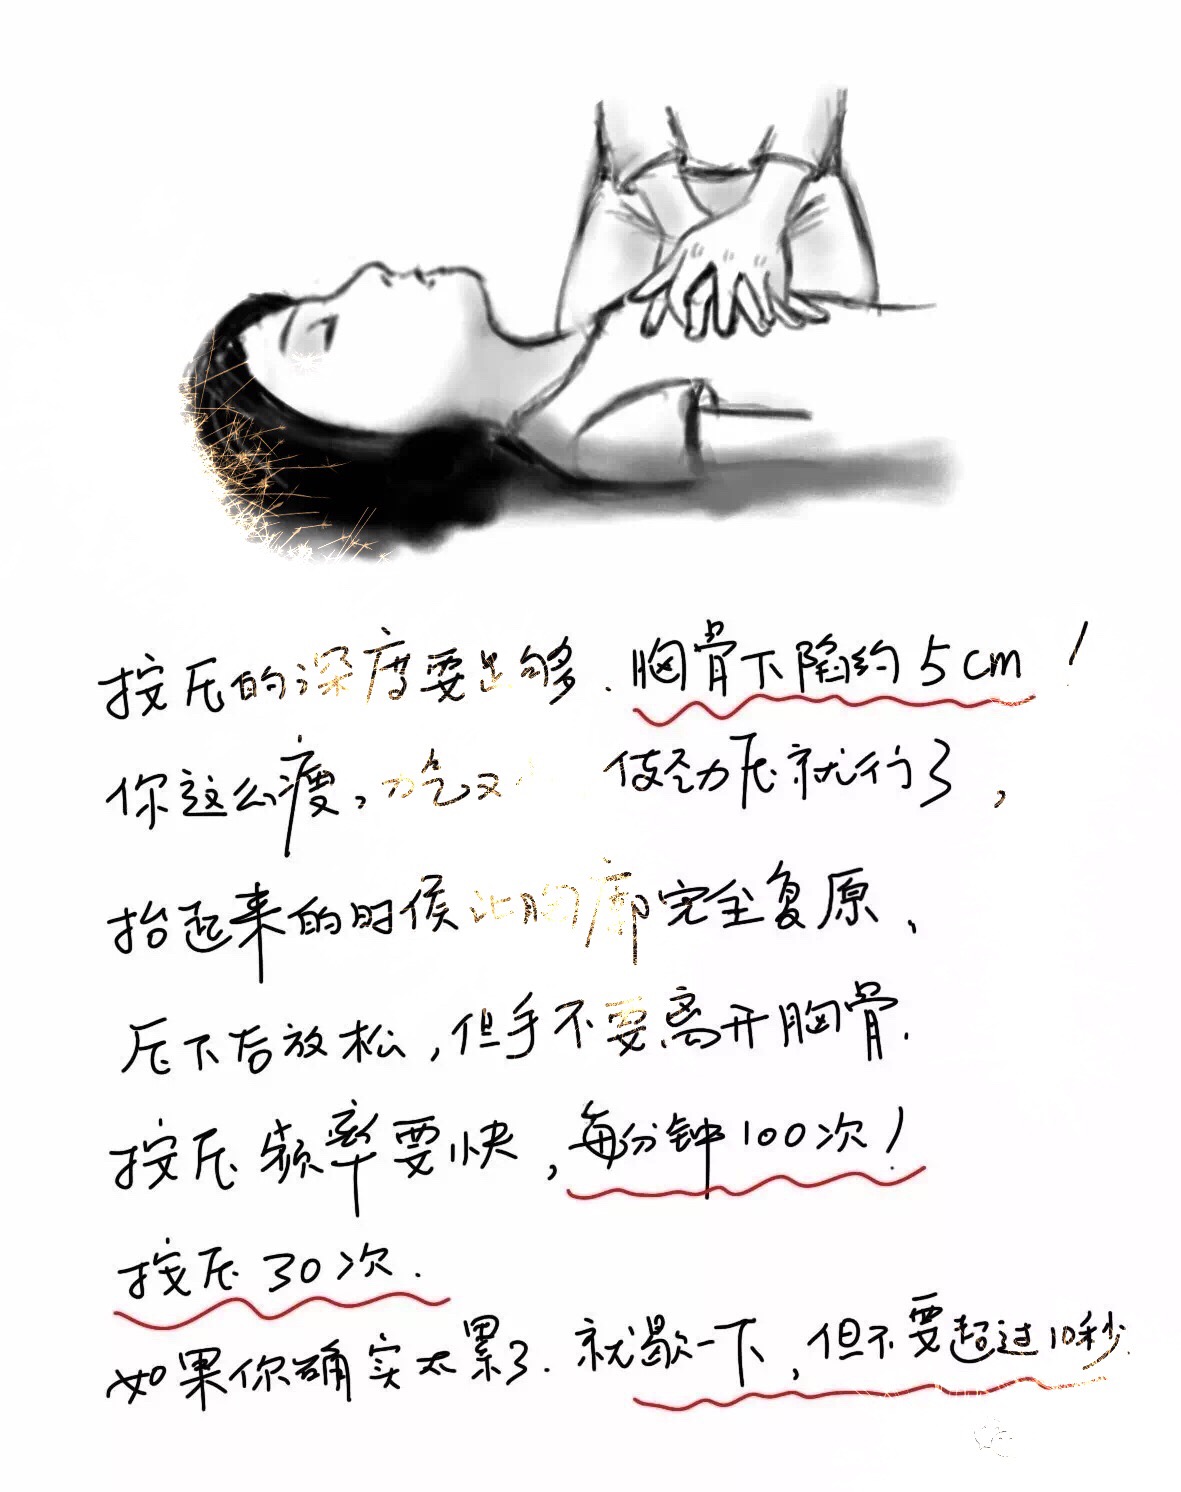 按压的深度要足够.胸骨下陷约5cm!
你这么瘦,力气又 使劲压就行了,
抬起来的时侯让胸廓完全复原、
压下后放松,但手不要离开胸骨.
按压频率要快,每分钟100次!
按压30次.
如果你确实太累了.就歇一下,但不要超过10秒.